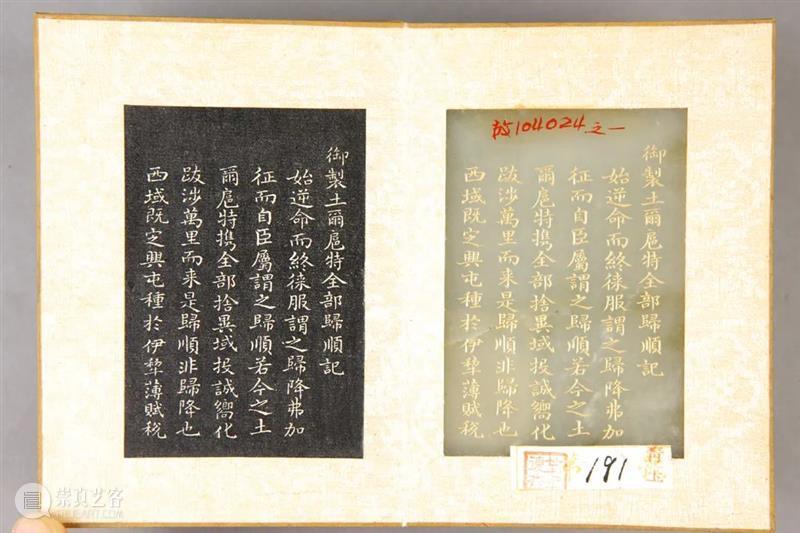 故104024之一
御製土爾扈特全部歸順記
始逆命而終徠服謂之歸降弗加
征而自臣屬謂之歸順若今之土
爾扈特携全部捨異域投誠嚮化
跋涉萬里而来是歸順非歸降也
西域既定興屯種於伊犂薄賦稅
191
御製土爾扈特全部歸順記
始逆命而終徠服謂之歸降弗加
征而自臣屬謂之歸順若今之土
爾扈特携全部捨異域投誠嚮化
跋涉萬里而来是歸順非歸降也
西域既定興屯種於伊犂薄賦稅
崇真艺客